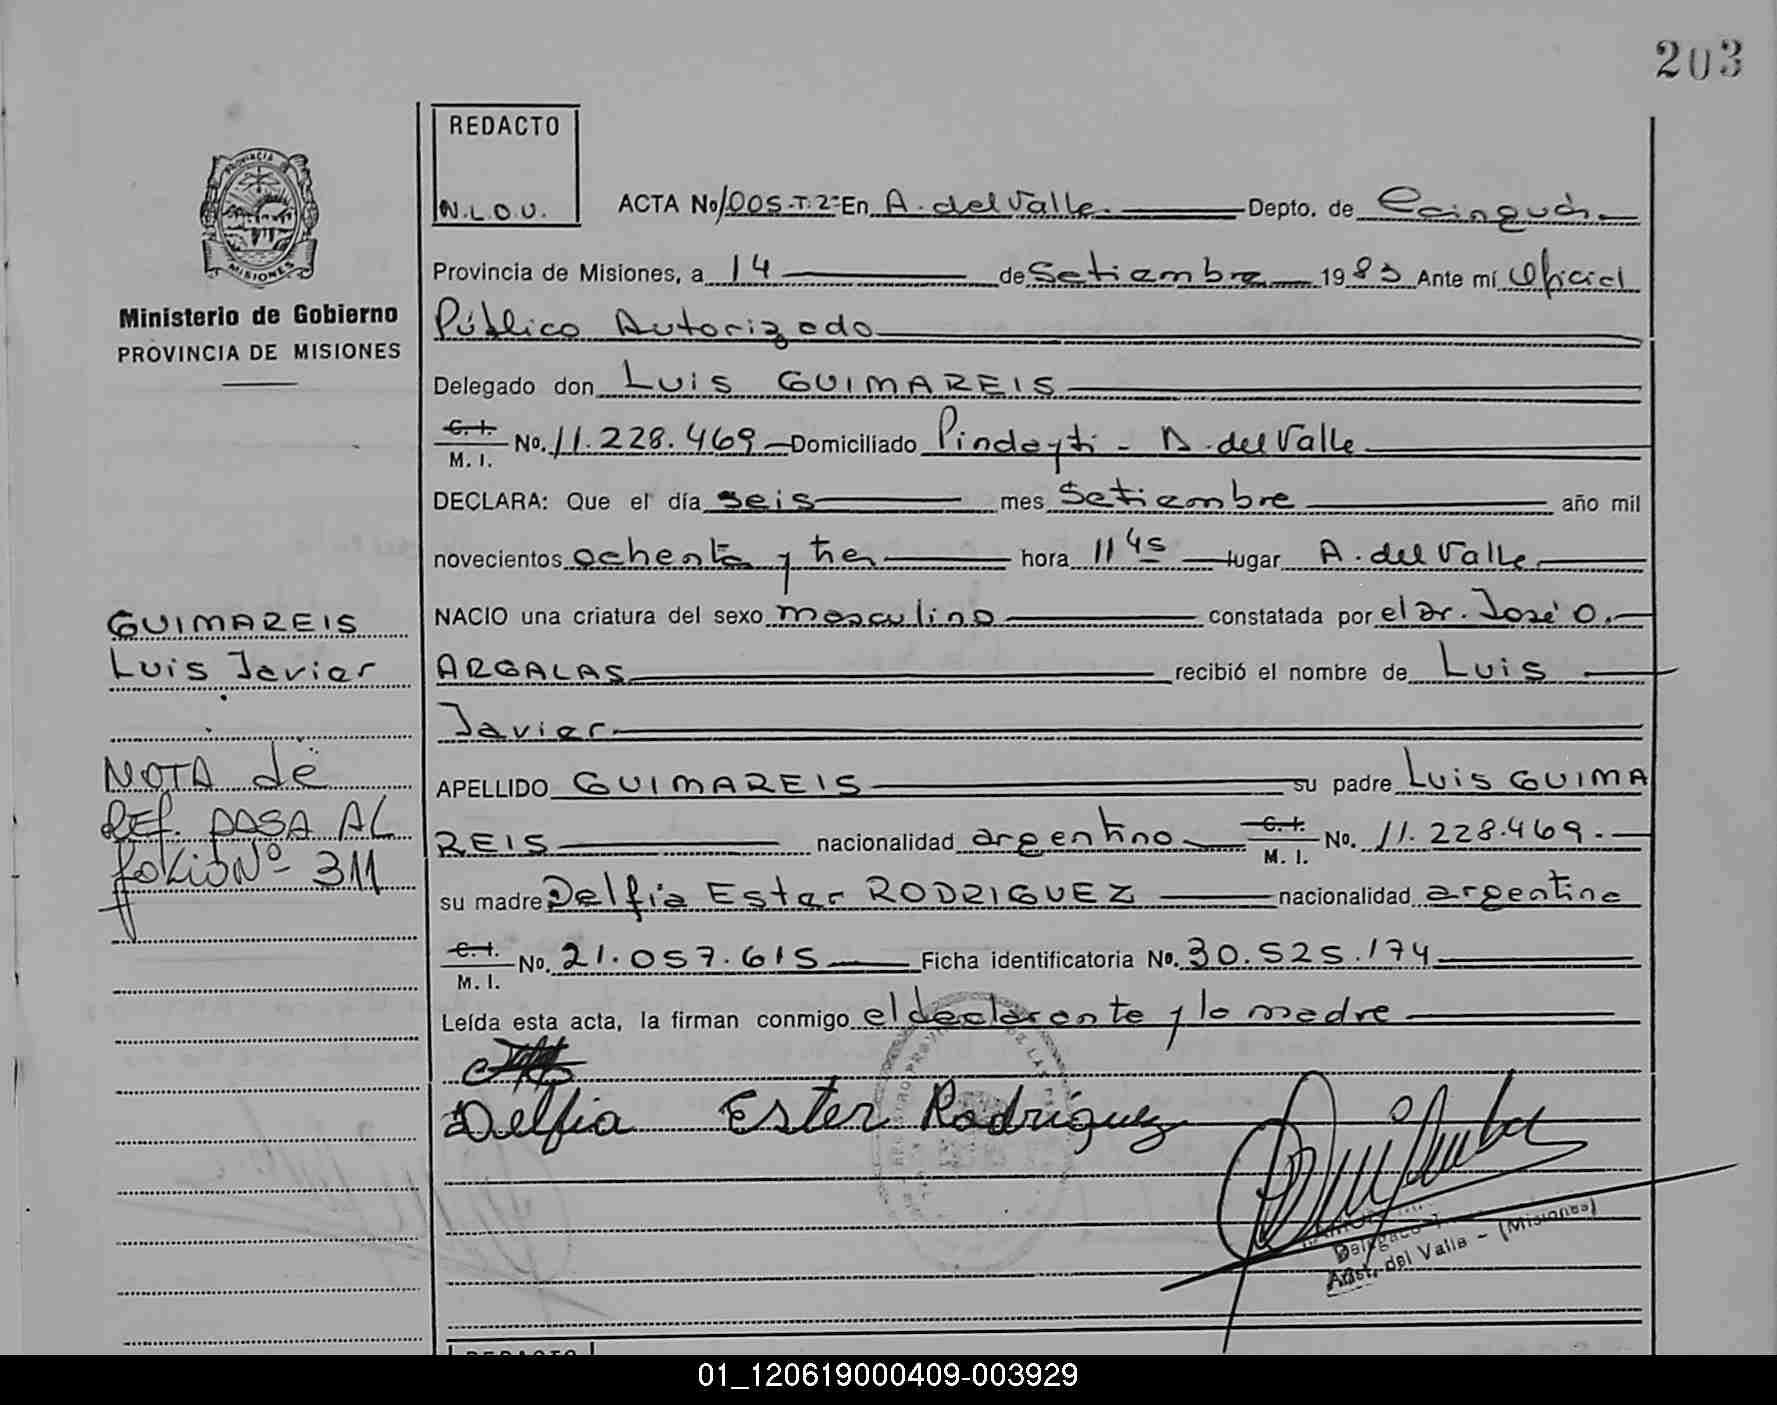 203
REDACTO
N.L.O.U.
ACTA No 1005-T.2- En A. del Valle. Depto. de Cainguás
Provincia de Misiones, a 14 de Setiembre 1983 Ante mí Oficial
Público Autorizado
Delegado don LUIS GUIMAREIS
C. I. M. I. No. 11.228.469 Domiciliado Pindayti - A. del Valle
DECLARA: Que el día seis mes Setiembre año mil
novecientos ochenta y tres hora 11 45 lugar A. del Valle
NACIO una criatura del sexo masculino constatada por el Dr. José O.
ARGALAS recibió el nombre de Luis
Javier
APELLIDO GUIMAREIS su padre Luis GUIMA
REIS nacionalidad argentino C. I. M. I. No. 11.228.469.-
su madre Delfia Ester RODRIGUEZ nacionalidad argentina
C. I. M. I. No. 21.057.615 Ficha identificatoria No. 30.525.174
Leída esta acta, la firman conmigo el declarante y la madre
Delfia Ester Rodríguez
Delegado
Arist. del Valle - (Misiones)
PROVINCIA DE
MISIONES
Ministerio de Gobierno
PROVINCIA DE MISIONES
GUIMAREIS
Luis Javier
NOTA de
REF. PASA AL
folio Nº 311
REDACTO
01_120619000409-003929